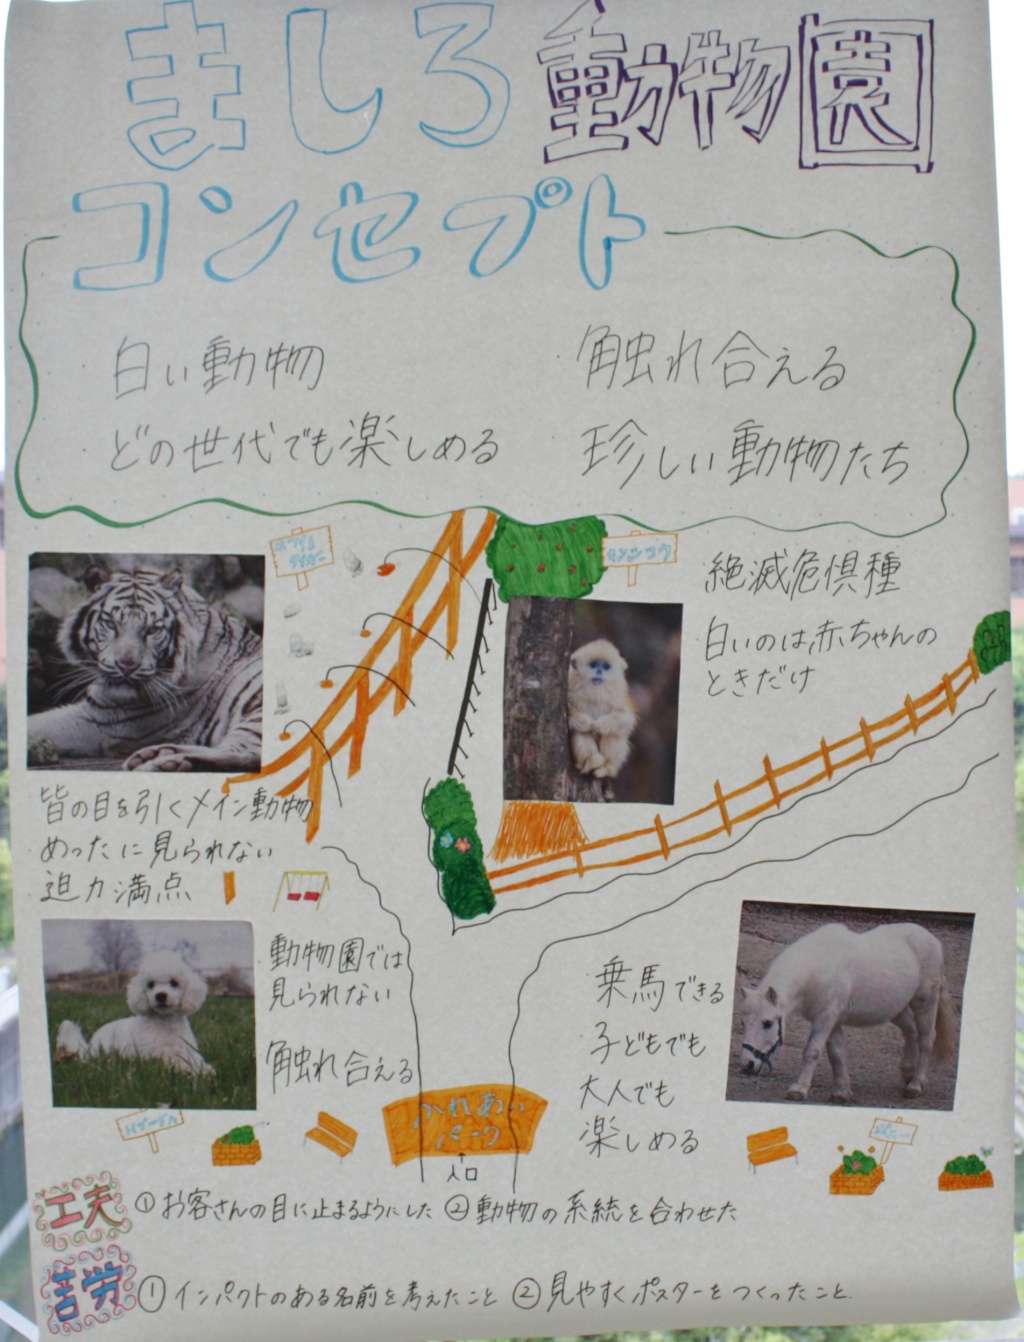 ましろ動物園
コンセプト
白い動物
触れ合える
どの世代でも楽しめる
珍しい動物たち
ホワイト
タイガー
キンシコウ
絶滅危惧種
白いのは、赤ちゃんの
ときだけ
皆の目を引くメイン動物
めったに見られない
迫力満点
動物園では
見られない
触れ合える
乗馬できる
子どもでも
大人でも
楽しめる
ふれあい
パーク
入口
トイプードル
ポニー
工夫
①お客さんの目に止まるようにした ②動物の系統を合わせた
苦労
①インパクトのある名前を考えたこと ②見やすくポスターをつくったこと.